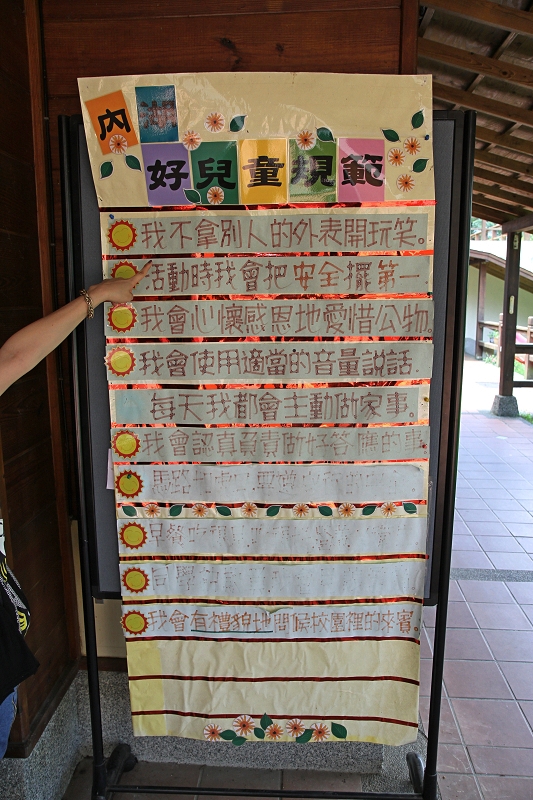 內
好兒童規範
我不拿別人的外表開玩笑。
活動時我會把安全擺第一
我會心懷感恩地愛惜公物。
我會使用適當的音量說話.
每天我都會主動做家事。
我會認真負責做好答應的事
馬路
早餐吃
同學
我會有禮貌地問候校園裡的來賓。